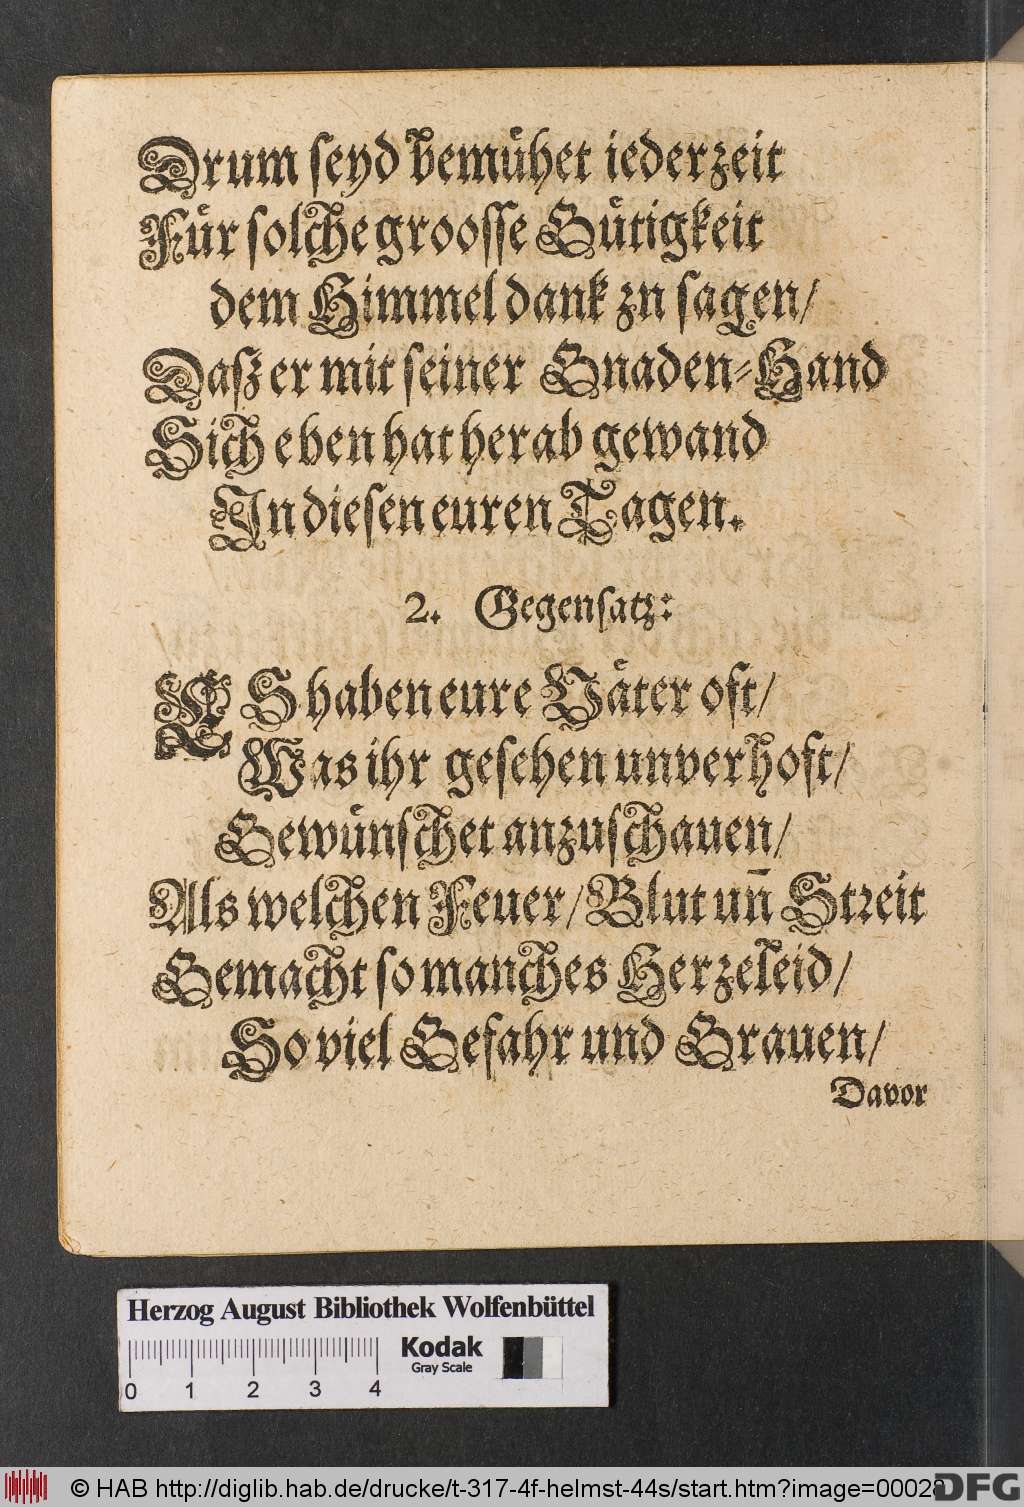 Drum seyd bemühet iederzeit
Für solche groosse Gütigkeit
dem Himmel dank zu sagen/
Daß er mit seiner Gnaden-Hand
Sich eben hat herab gewand
In diesen euren Tagen.
2. Gegensatz:
ES haben eure Väter oft/
Was ihr gesehen unverhoft/
Gewünschet anzuschauen/
Als welchen Feuer/ Blut uñ Streit
Gemacht so manches Herzeleid/
So viel Gefahr und Grauen/
Davor
Herzog August Bibliothek Wolfenbüttel
Kodak
Gray Scale
0 1 2 3 4
© HAB http://diglib.hab.de/drucke/t-317-4f-helmst-44s/start.htm?image=00028
DFG